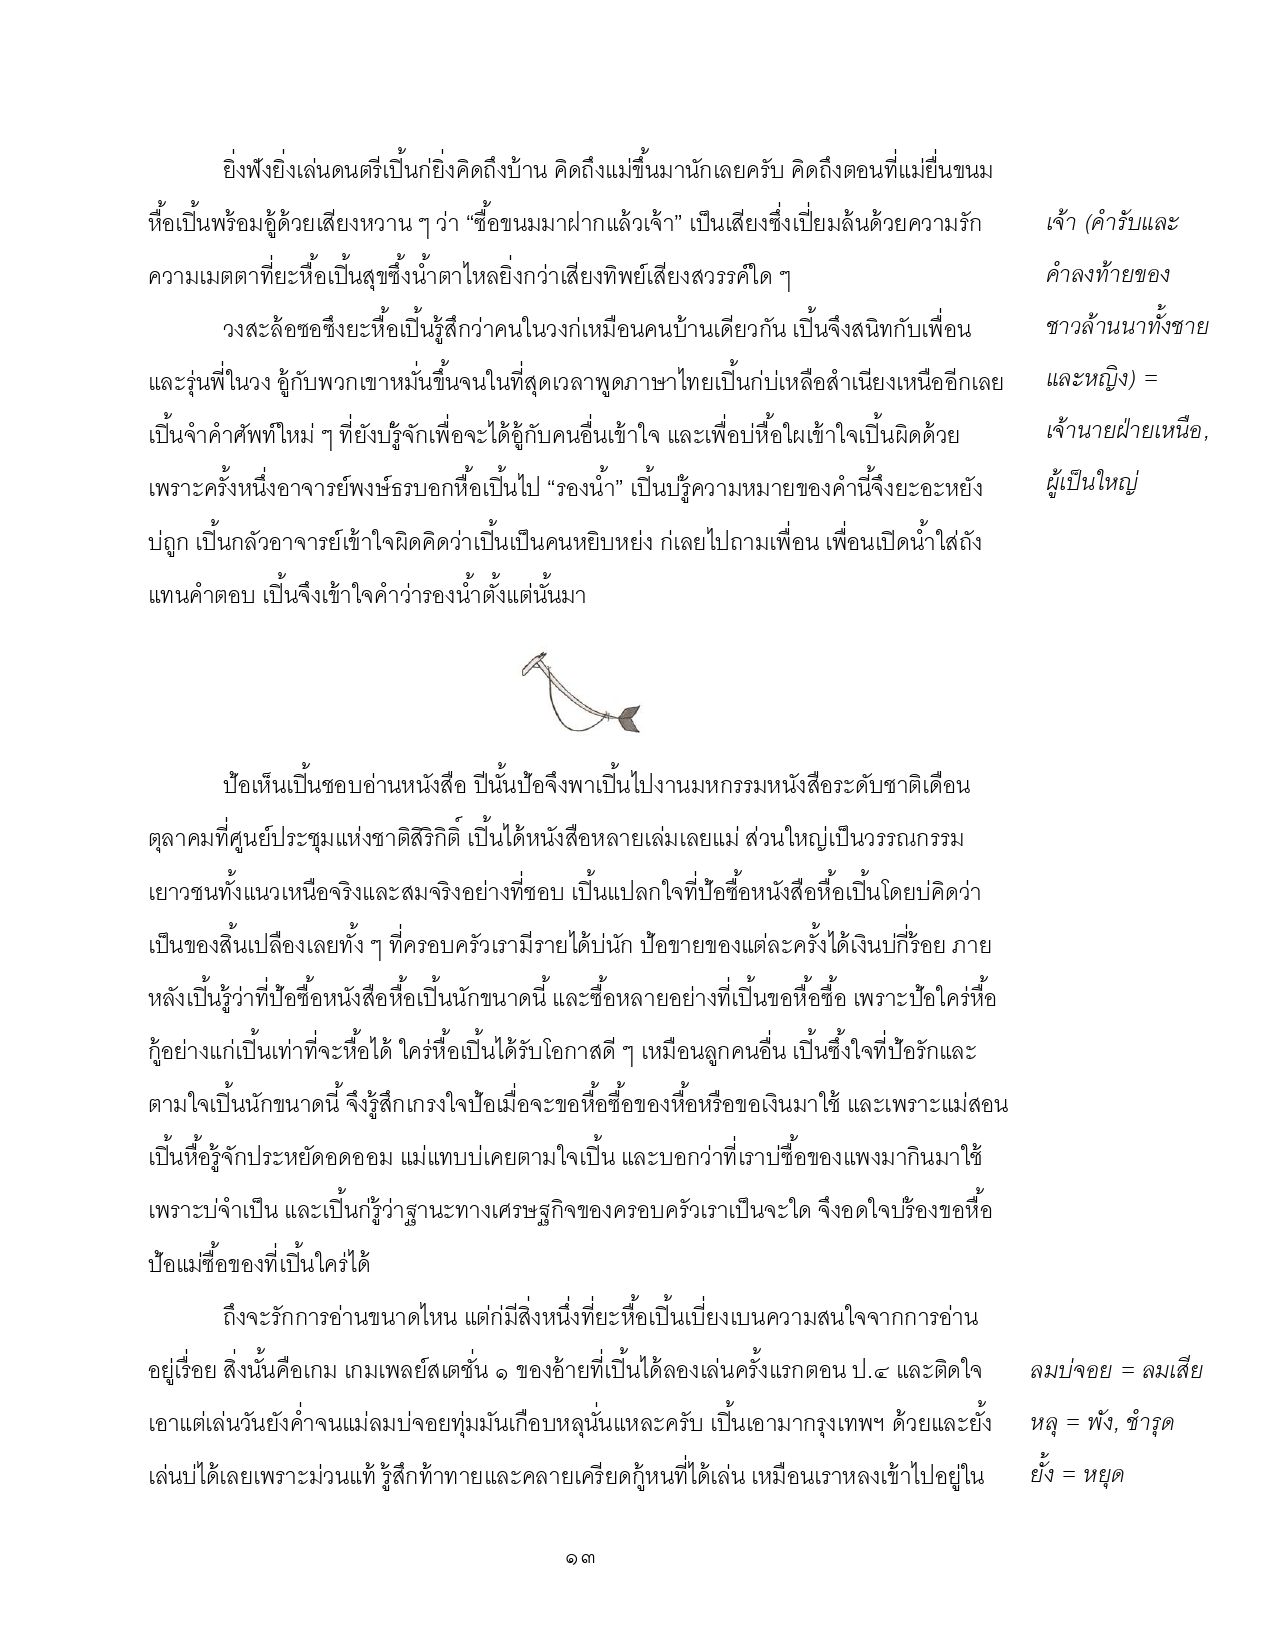 ยิ่งฟังยิ่งเล่นดนตรีเปิ้นก่ยิ่งคิดถึงบ้าน คิดถึงแม่ขึ้นมานักเลยครับ คิดถึงตอนที่แม่ยื่นขนม
หื้อเปิ้นพร้อมอู้ด้วยเสียงหวาน ๆ ว่า “ซื้อขนมมาฝากแล้วเจ้า” เป็นเสียงซึ่งเปี่ยมล้นด้วยความรัก
ความเมตตาที่ยะหื้อเปิ้นสุขซึ้งน้ำตาไหลยิ่งกว่าเสียงทิพย์เสียงสวรรค์ใด ๆ
วงสะล้อซอซึงยะหื้อเปิ้นรู้สึกว่าคนในวงก่เหมือนคนบ้านเดียวกัน เปิ้นจึงสนิทกับเพื่อน
และรุ่นพี่ในวง อู้กับพวกเขาหมั่นขึ้นจนในที่สุดเวลาพูดภาษาไทยเปิ้นก่บ่เหลือสำเนียงเหนืออีกเลย
เปิ้นจำคำศัพท์ใหม่ ๆ ที่ยังบ่รู้จักเพื่อจะได้อู้กับคนอื่นเข้าใจ และเพื่อบ่หื้อใผเข้าใจเปิ้นผิดด้วย
เพราะครั้งหนึ่งอาจารย์พงษ์ธรบอกหื้อเปิ้นไป “รองน้ำ” เปิ้นบ่รู้ความหมายของคำนี้จึงยะอะหยัง
บ่ถูก เปิ้นกลัวอาจารย์เข้าใจผิดคิดว่าเปิ้นเป็นคนหยิบหย่ง ก่เลยไปถามเพื่อน เพื่อนเปิดน้ำใส่ถัง
แทนคำตอบ เปิ้นจึงเข้าใจคำว่ารองน้ำตั้งแต่นั้นมา
เจ้า (คำรับและ
คำลงท้ายของ
ชาวล้านนาทั้งชาย
และหญิง) =
เจ้านายฝ่ายเหนือ,
ผู้เป็นใหญ่
ป้อเห็นเปิ้นชอบอ่านหนังสือ ปีนั้นป้อจึงพาเปิ้นไปงานมหกรรมหนังสือระดับชาติเดือน
ตุลาคมที่ศูนย์ประชุมแห่งชาติสิริกิติ์ เปิ้นได้หนังสือหลายเล่มเลยแม่ ส่วนใหญ่เป็นวรรณกรรม
เยาวชนทั้งแนวเหนือจริงและสมจริงอย่างที่ชอบ เปิ้นแปลกใจที่ป้อซื้อหนังสือหื้อเปิ้นโดยบ่คิดว่า
เป็นของสิ้นเปลืองเลยทั้ง ๆ ที่ครอบครัวเรามีรายได้บ่นัก ป้อขายของแต่ละครั้งได้เงินบ่กี่ร้อย ภาย
หลังเปิ้นรู้ว่าที่ป้อซื้อหนังสือหื้อเปิ้นนักขนาดนี้ และซื้อหลายอย่างที่เปิ้นขอหื้อซื้อ เพราะป้อใคร่หื้อ
กู้อย่างแก่เปิ้นเท่าที่จะหื้อได้ ใคร่หื้อเปิ้นได้รับโอกาสดี ๆ เหมือนลูกคนอื่น เปิ้นซึ้งใจที่ป้อรักและ
ตามใจเปิ้นนักขนาดนี้ จึงรู้สึกเกรงใจป้อเมื่อจะขอหื้อซื้อของหื้อหรือขอเงินมาใช้ และเพราะแม่สอน
เปิ้นหื้อรู้จักประหยัดอดออม แม่แทบบ่เคยตามใจเปิ้น และบอกว่าที่เราบ่ซื้อของแพงมากินมาใช้
เพราะบ่จำเป็น และเปิ้นก่รู้ว่าฐานะทางเศรษฐกิจของครอบครัวเราเป็นจะใด จึงอดใจบ่ร้องขอหื้อ
ป้อแม่ซื้อของที่เปิ้นใคร่ได้
ถึงจะรักการอ่านขนาดไหน แต่ก่มีสิ่งหนึ่งที่ยะหื้อเปิ้นเบี่ยงเบนความสนใจจากการอ่าน
อยู่เรื่อย สิ่งนั้นคือเกม เกมเพลย์สเตชั่น ๑ ของอ้ายที่เปิ้นได้ลองเล่นครั้งแรกตอน ป.๔ และติดใจ
เอาแต่เล่นวันยังค่ำจนแม่ลมบ่จอยทุ่มมันเกือบหลุนั่นแหละครับ เปิ้นเอามากรุงเทพฯ ด้วยและยั้ง
เล่นบ่ได้เลยเพราะม่วนแท้ รู้สึกท้าทายและคลายเครียดกู้หนที่ได้เล่น เหมือนเราหลงเข้าไปอยู่ใน
ลมบ่จอย = ลมเสีย
หลุ = พัง, ชำรุด
ยั้ง = หยุด
๑๓